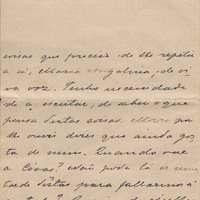 coisas que preciso de lhe repetir
a si, Maria Angelina, de vi
va voz. Tenho necessidade
de a escutar, de saber o que
pensa d'estas coisas.
lhe ouvir dizer que ainda gos
ta de mim. Quando vae
a Covas? Não pode lá ir uma
tarde d'estas para fallarmos á